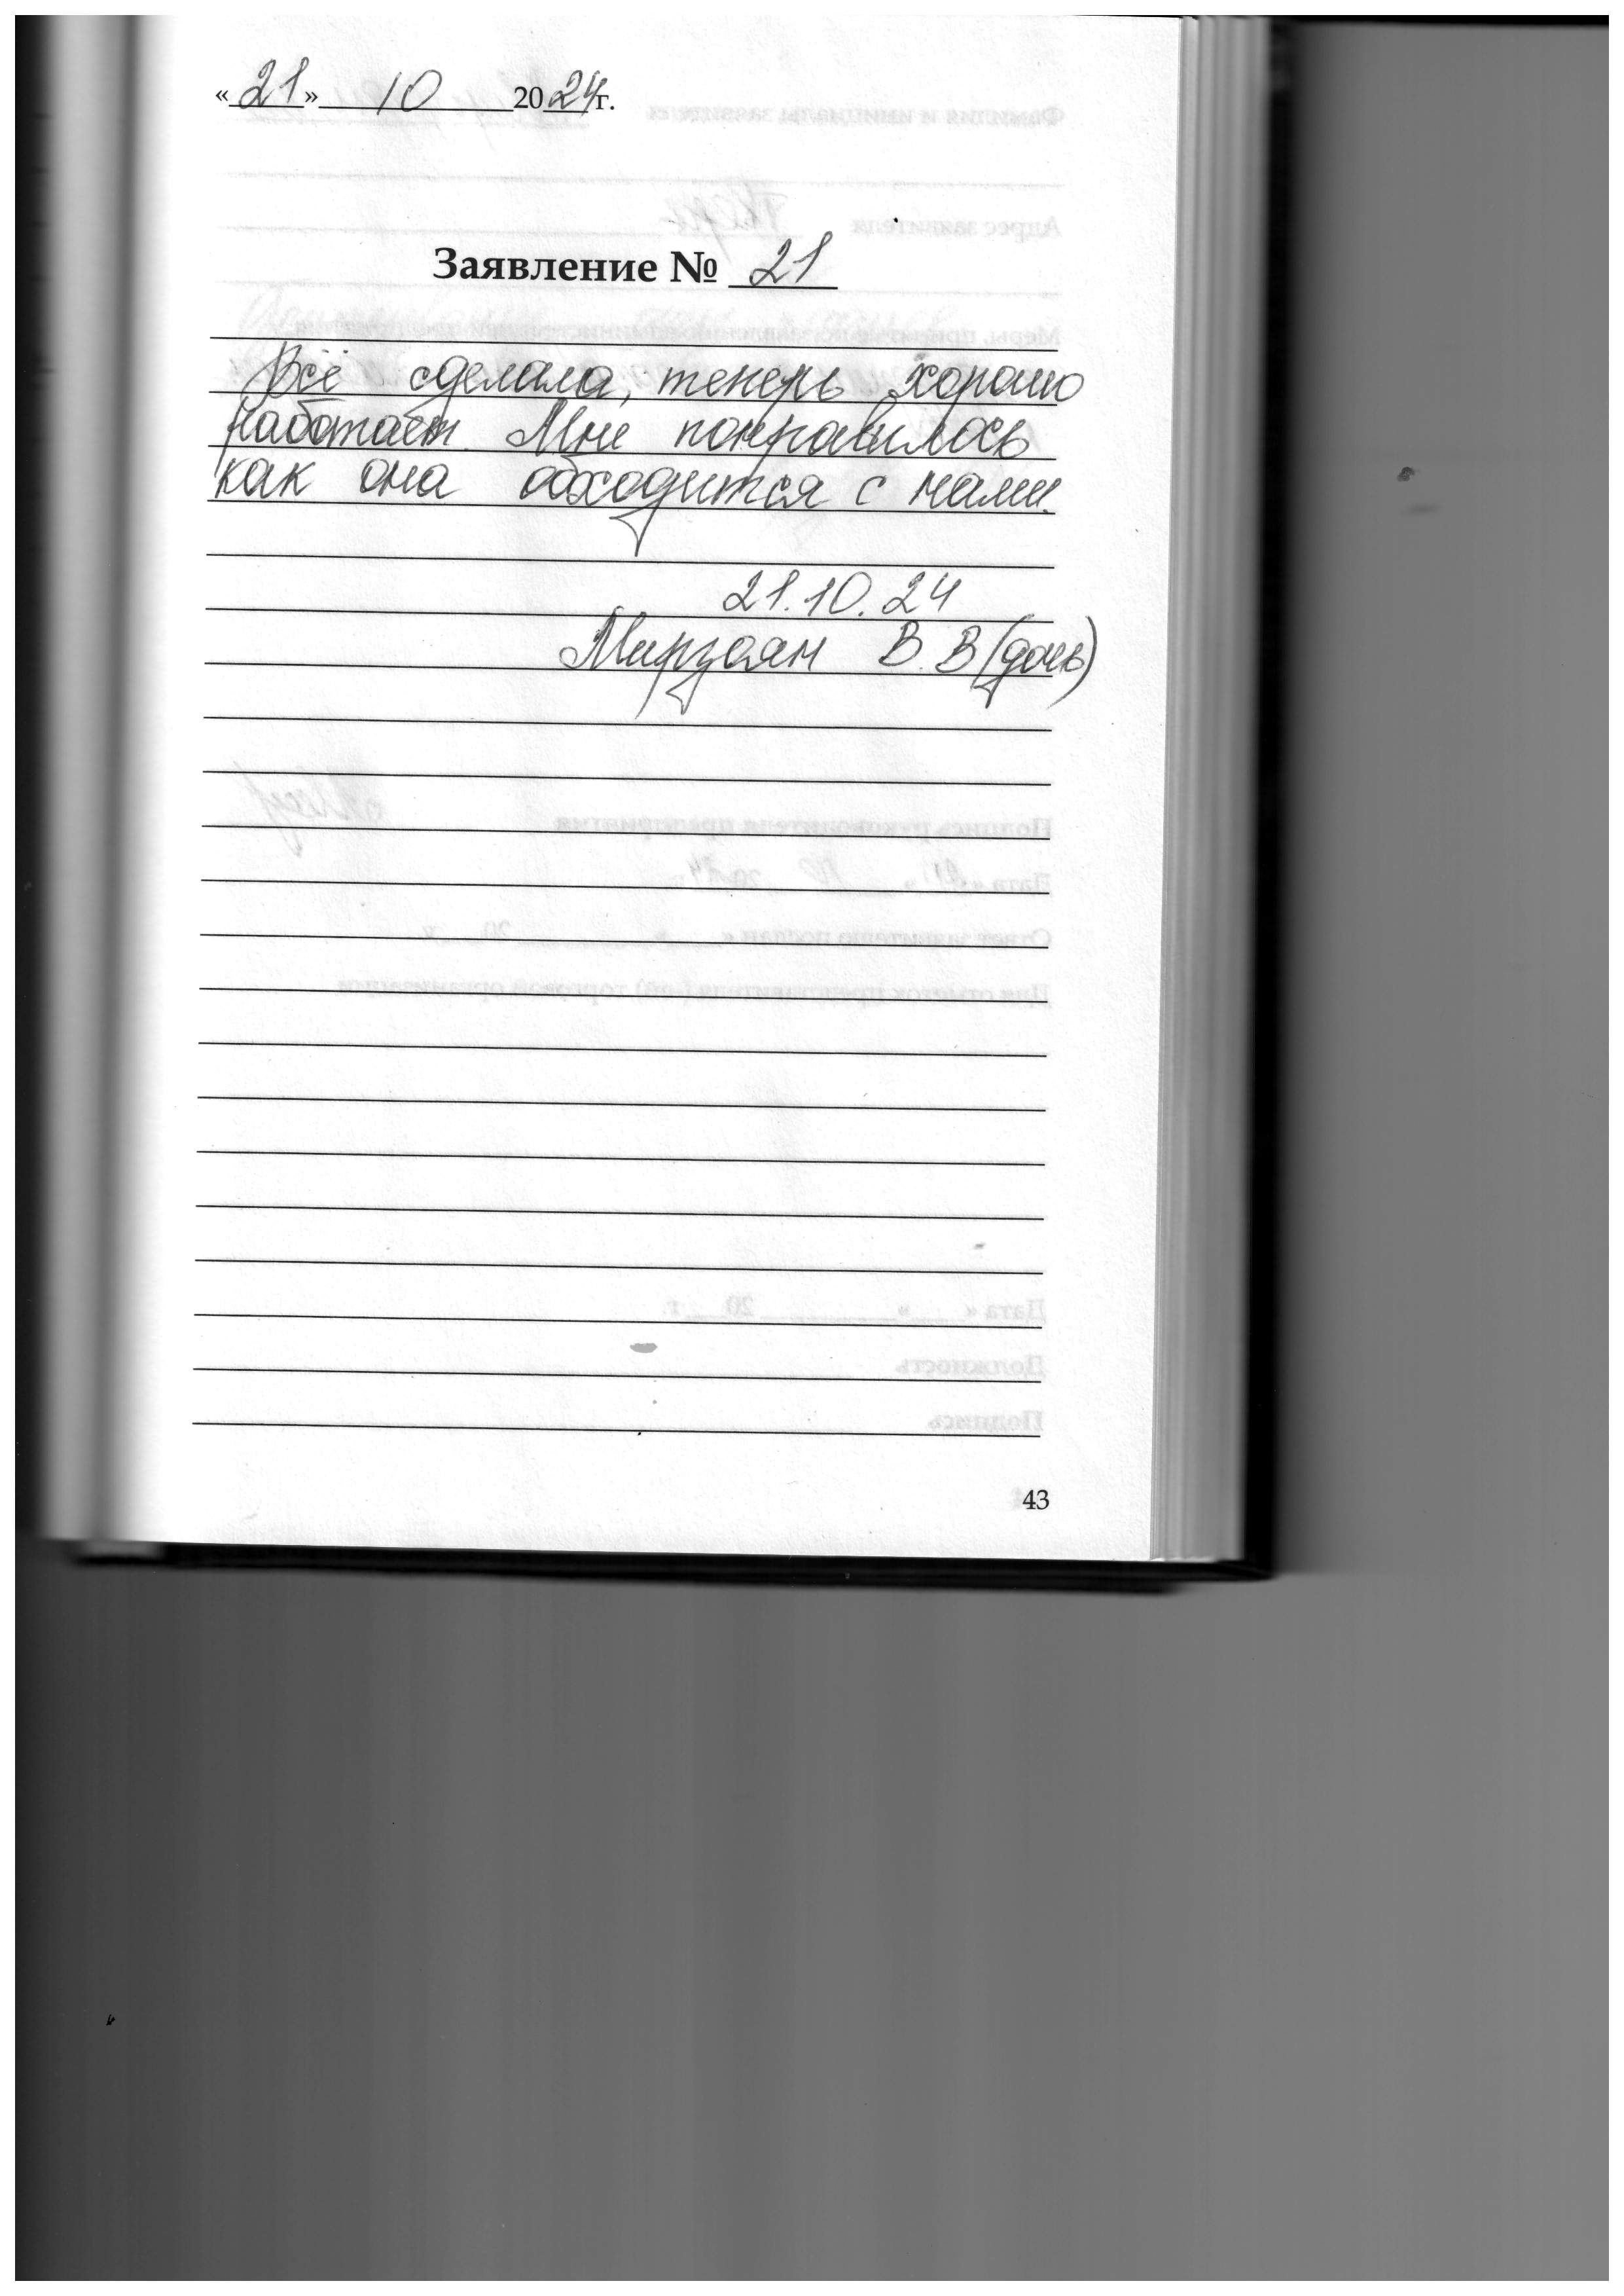 «21» 10 2024г.
Заявление № 21
Всё сделала, теперь хорошо
работает. Мне понравилось
как она обходится с нами.
21.10.24
Мирзоян В. В (дочь)
43